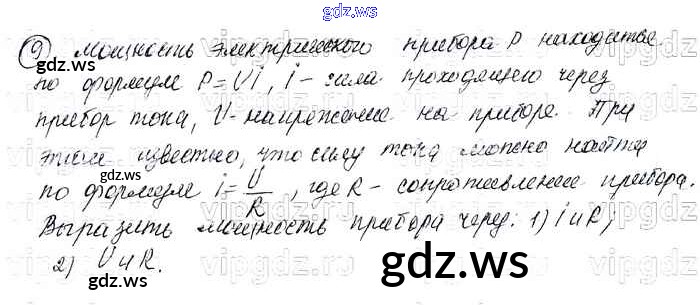 gdz.ws
9) Мощность электрического прибора P находится
gdz.ws
по формуле P=Ui, i - сила проходящего через
прибор тока, U - напряжение на приборе. При
этом известно, что силу тока можно найти
по формуле i = U/R, где R - сопротивление прибора.
gdz.ws
Выразить мощность прибора через: 1) i и R;
2) U и R.
gdz.ws
gdz.ws